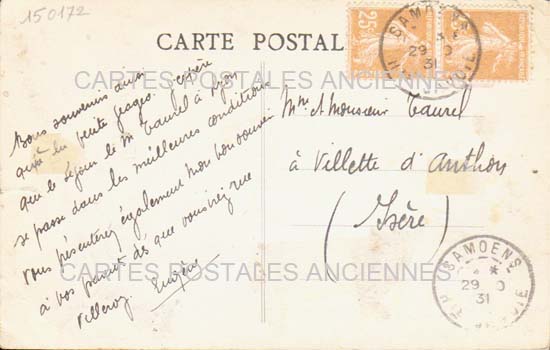 150172
CARTE POSTALE
25c
SAMOENS
29
31
Bons souvenirs ainsi
qu'à la petite
que le séjour de Mr Taurel à Lyon
se passe dans les meilleures conditions
vous présenterez également mon bon souvenir
à vos parents dès que vous irez rue
Villeroy. Eugène
Mme et Monsieur Taurel
à Villette d'Anthon
(Isère)
CARTES POSTALES ANCIENNES
CARTES POSTALES ANCIENNES
SAMOENS
29
31